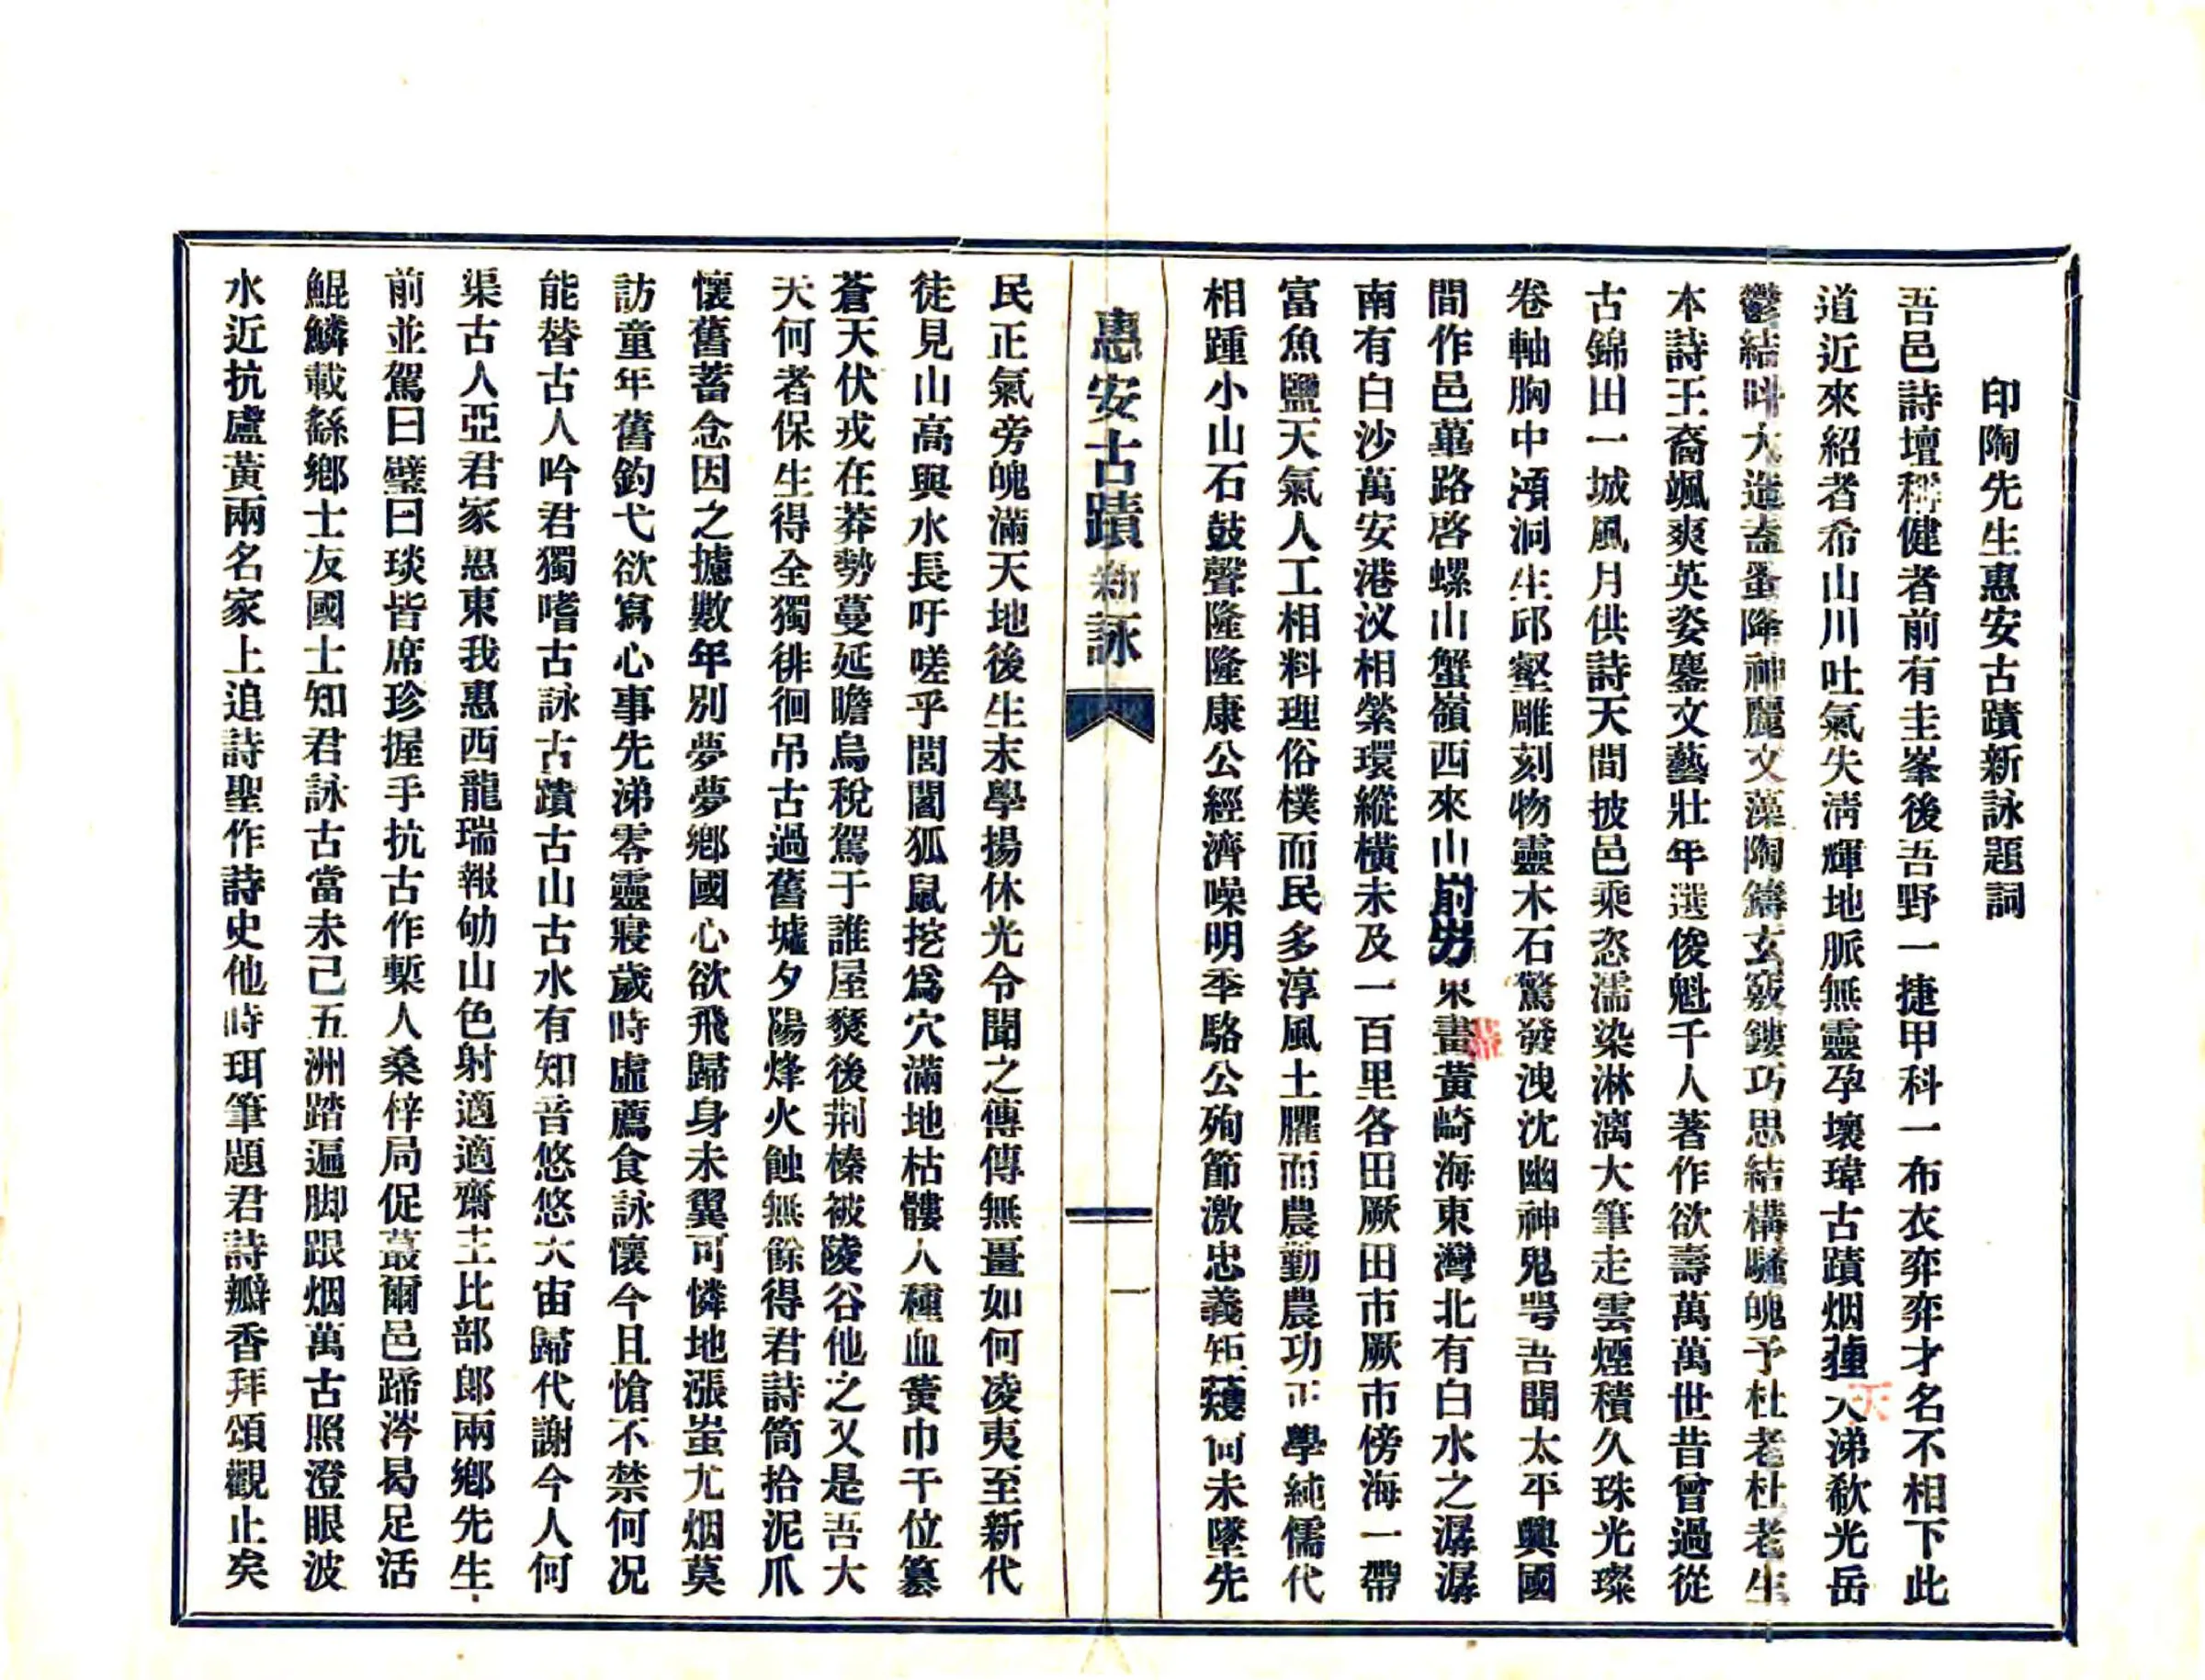 印陶先生惠安古蹟新詠題詞
吾邑詩壇稱健者前有主峯後吾野一捷甲科一布衣弈弈才名不相下此
道近來紹者希山川吐氣失淸輝地脈無靈孕壞瑋古蹟烟天涕欷光岳
鬱結時大造盍蚤降神麗文藻陶鑄玄竅鏤巧思結構騷魄予杜老杜老生
本詩王裔颯爽英姿鏖文藝壯年選俊魁千人著作欲壽萬萬世昔曾過從
古錦田一城風月供詩天間披邑乘恣濡染淋漓大筆走雲煙積久珠光璨
卷軸胸中澒洞生邱壑雕刻物靈木石驚發洩沈幽神鬼咢吾聞太平興國
間作邑蓽路啓螺山蟹嶺西來山前畫黃崎海東灣北有白水之潺潺
南有白沙萬安港汊相縈環縱橫未及一百里各田厥田市厥市傍海一帶
富魚鹽天氣人工相料理俗樸而民多淳風土臞而農勤農功正學純儒代
相踵小山石鼓聲隆隆康公經濟噪明季駱公殉節激忠義矩蒦何未墜先
惠安古蹟新詠
一
民正氣旁魄滿天地後生末學揚休光令聞之傳傳無畺如何凌夷至新代
徒見山高與水長吁嗟乎閭閻狐鼠挖爲穴滿地枯髏人種血黃巾干位篡
蒼天伏戎在莽勢蔓延瞻烏稅駕于誰屋燹後荆榛被陵谷他之又是吾大
天何者保生得全獨徘徊吊古過舊墟夕陽烽火蝕無餘得君詩筒拾泥爪
懷舊蓄念因之攄數年別夢夢鄉國心欲飛歸身未翼可憐地漲蚩尤烟莫
訪童年舊釣弋欲寫心事先涕零靈寢歲時虛薦食詠懷今且愴不禁何况
能替古人吟君獨嗜古詠古蹟古山古水有知音悠悠大宙歸代謝今人何
渠古人亞君家惠東我惠西龍瑞報劬山色射適適齋主比部郎兩鄉先生
前並駕曰璧曰琰皆席珍握手抗古作槧人桑梓局促蕞爾邑蹄涔曷足活
鯤鱗載繇鄉士友國士知君詠古當未已五洲踏遍脚跟烟萬古照澄眼波
水近抗盧黃兩名家上追詩聖作詩史他時珥筆題君詩瓣香拜頌觀止矣